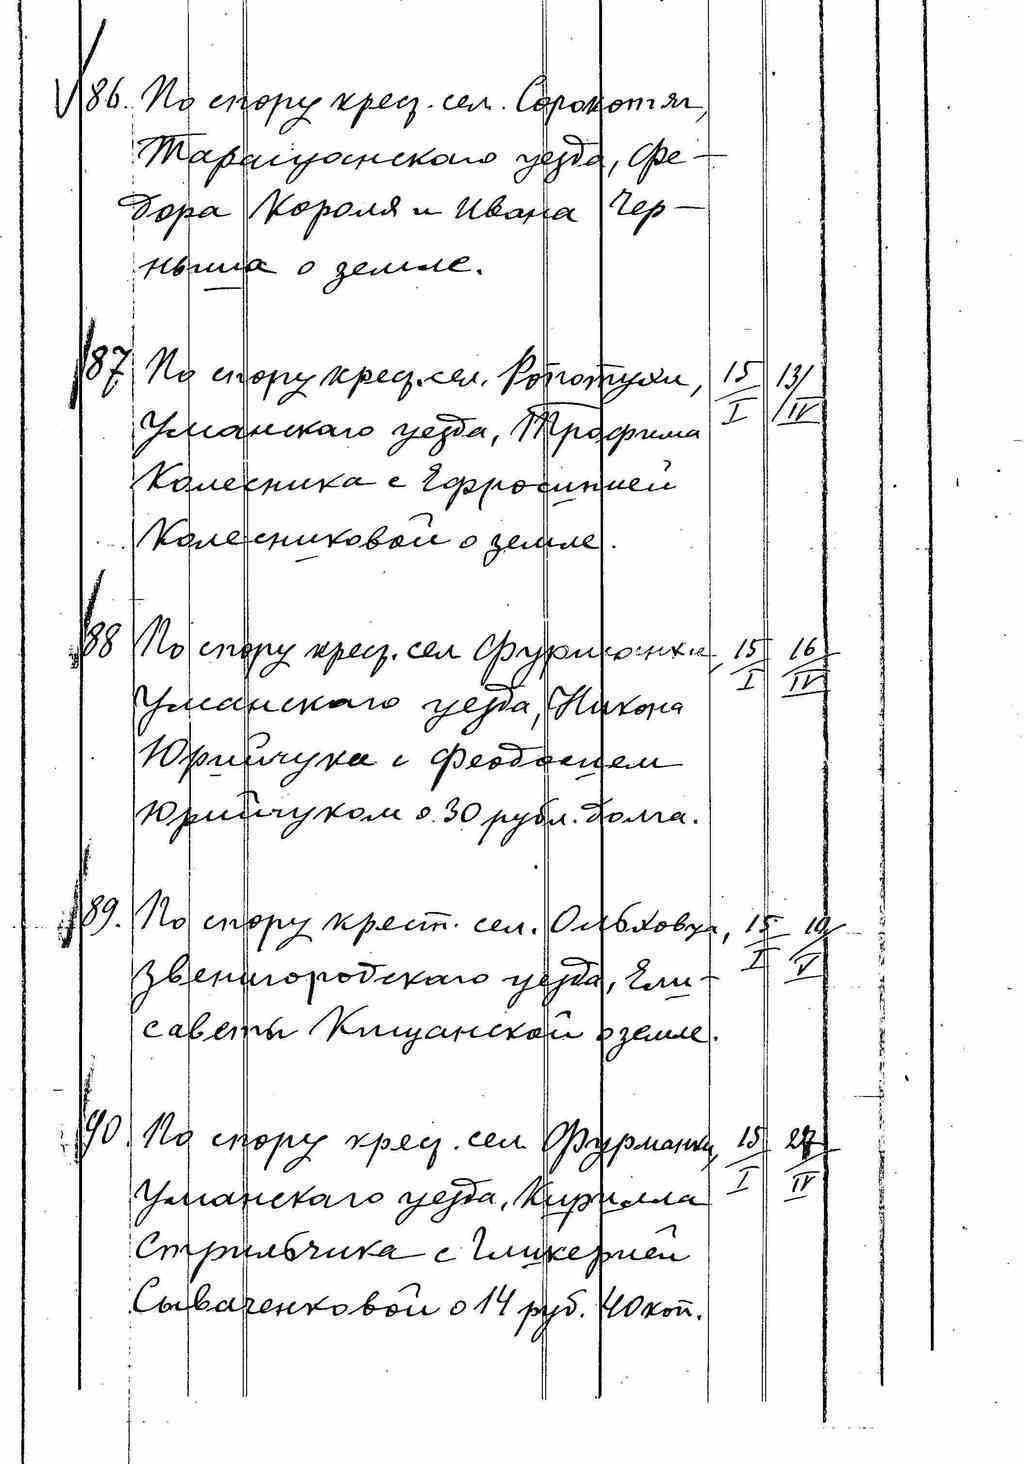 86. По спору крец. сел. Сорокотяг,
Таращанскаго уезда, Фе-
дора Короля и Ивана Чер-
ныша о земле.
87 По спору крец. сел. Ропотухи, 15/I 13/IV
Уманскаго уезда, Трофима
Колесника с Ефросинией
Колесниковой о земле.
88 По спору крец. сел Фурманки, 15/I 16/IV
Уманскаго уезда, Никона
Юрийчука с Феодосием
Юрийчуком о 30 рубл. долга.
89. По спору крест. сел. Ольховца, 15/I 10/V
Звенигородскаго уезда, Ели-
саветы Кищанской о земле.
90. По спору крец. сел Фурманки, 15/I 27/IV
Уманскаго уезда, Кирилла
Стрильчика с Гликерией
Сываченковой о 14 руб. 40 коп.